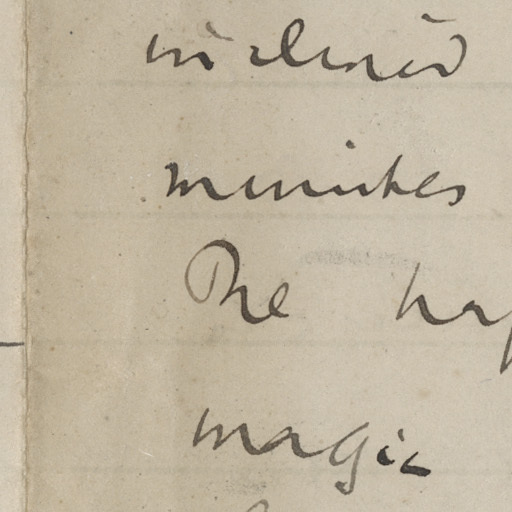 inclined
minutes
The hap
magic